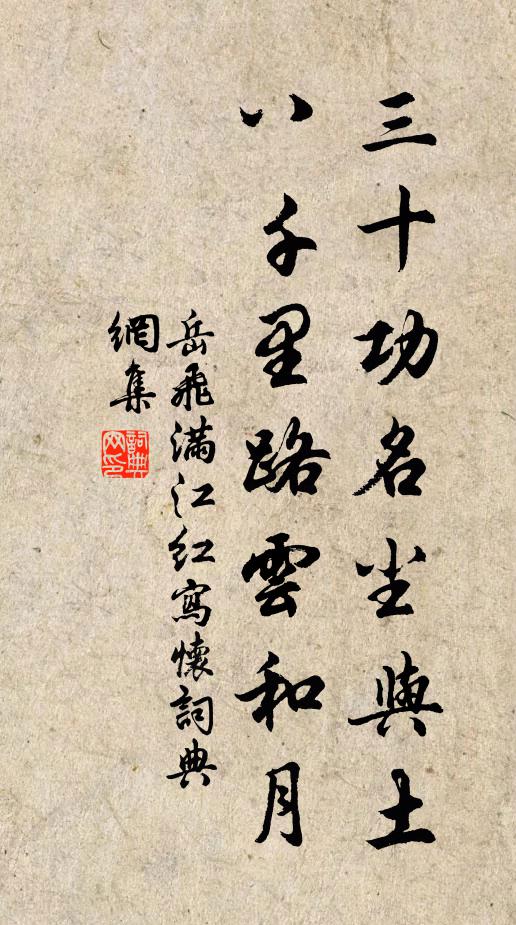 三十功名尘與土
八千里路雲和月
岳飛滿江红寫懷詞典
網集
詞典網印